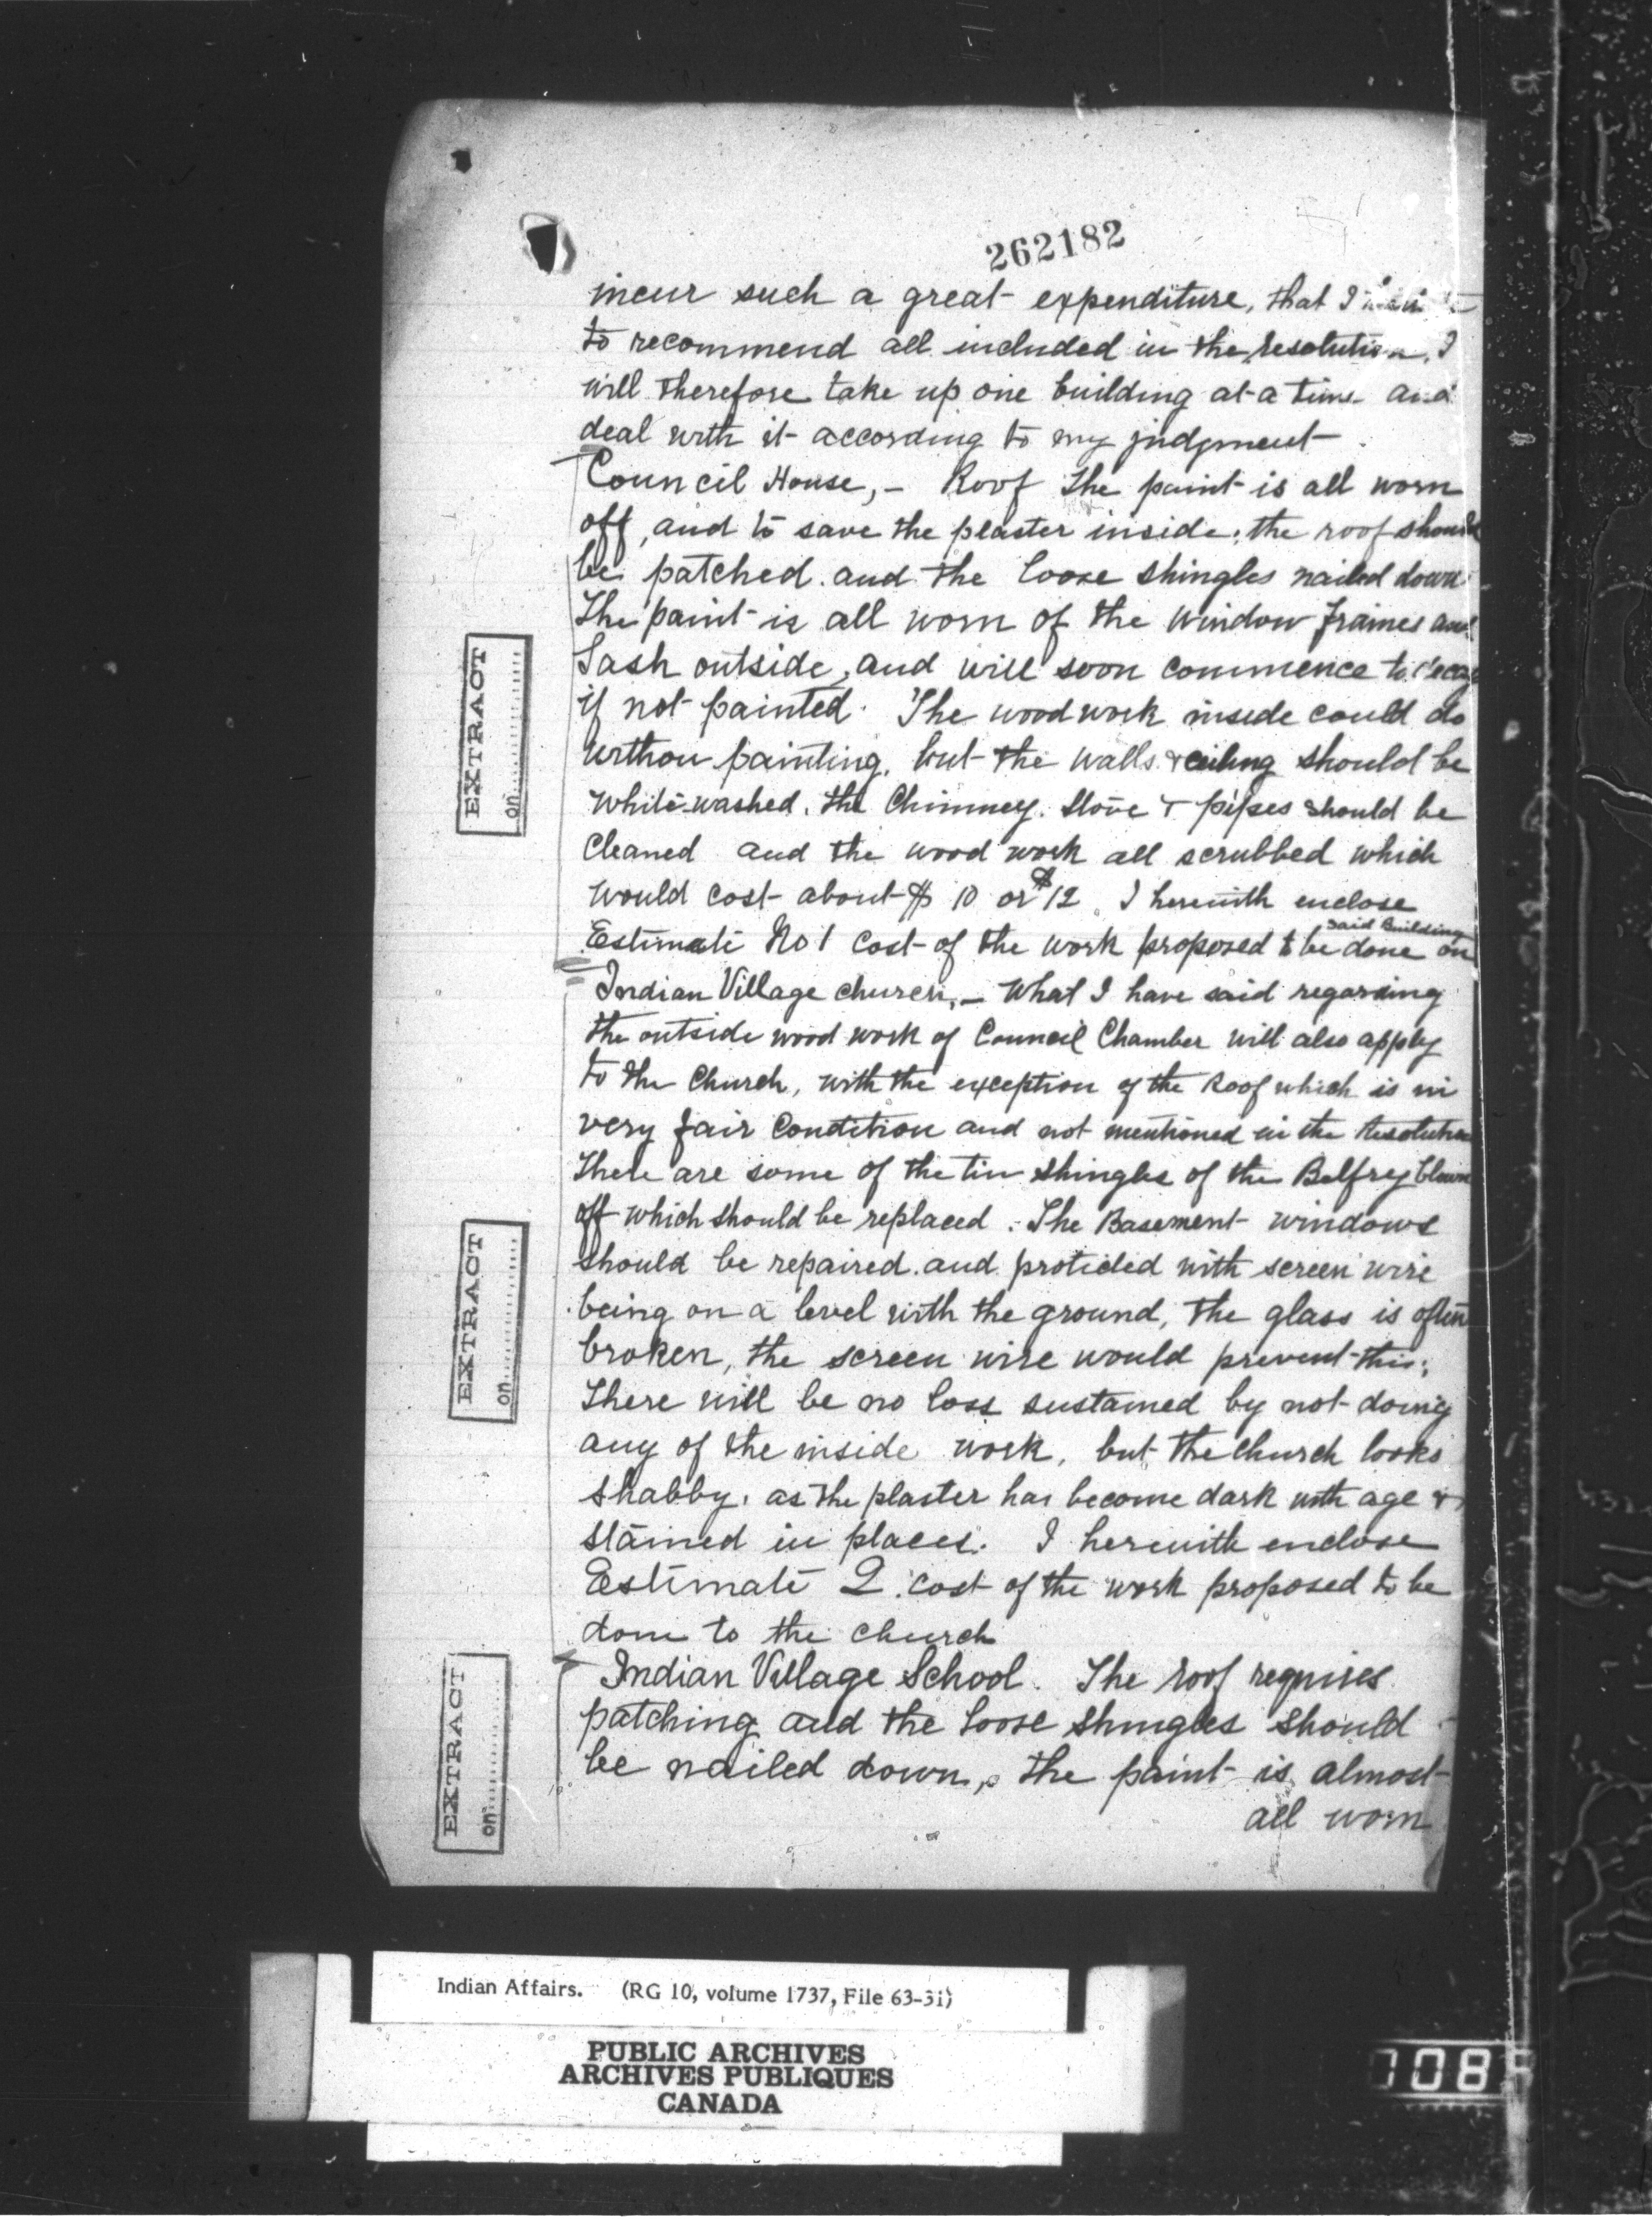 262182
incur such a great expenditure, that I
to recommend all included in the resolution, I
will therefore take up one building at a time and
deal with it according to my judgment
Council House, – Roof The paint is all worn
off, and to save the plaster inside, the roof should
be patched and the loose shingles nailed down
The paint is all worn of the window frames and
Sash outside, and will soon commence to decay
if not painted. The wood work inside could do
withou painting, but the walls & ceiling should be
white-washed. the Chimney. Stove & pipes should be
cleaned and the wood work all scrubbed which
would cost about $ 10 or $12. I herewith enclose
said Building
Estimate No 1 cost of the work proposed to be done on
Indian Village church, – What I have said regarding
the outside wood work of Council Chamber will also apply
to the Church, with the exception of the Roof which is in
very fair Condition and not mentioned in the Resolution
There are some of the tin shingles of the Belfrey blown
off which should be replaced. The Basement windows
should be repaired and protected with screen wire
being on a level with the ground, the glass is often
broken, the screen wire would prevent this;
There will be no loss sustained by not doing
any of the inside work, but the church looks
shabby, as the plaster has become dark with age &
stained in places. I herewith enclose
Estimate 2 cost of the work proposed to be
done to the church
Indian Village School. The roof requires
patching and the loose shingles should
be nailed down, the paint is almost
all worn
EXTRACT
on
EXTRACT
on
EXTRACT
on
Indian Affairs. (RG 10, volume 1737, File 63-3i)
PUBLIC ARCHIVES
ARCHIVES PUBLIQUES
CANADA